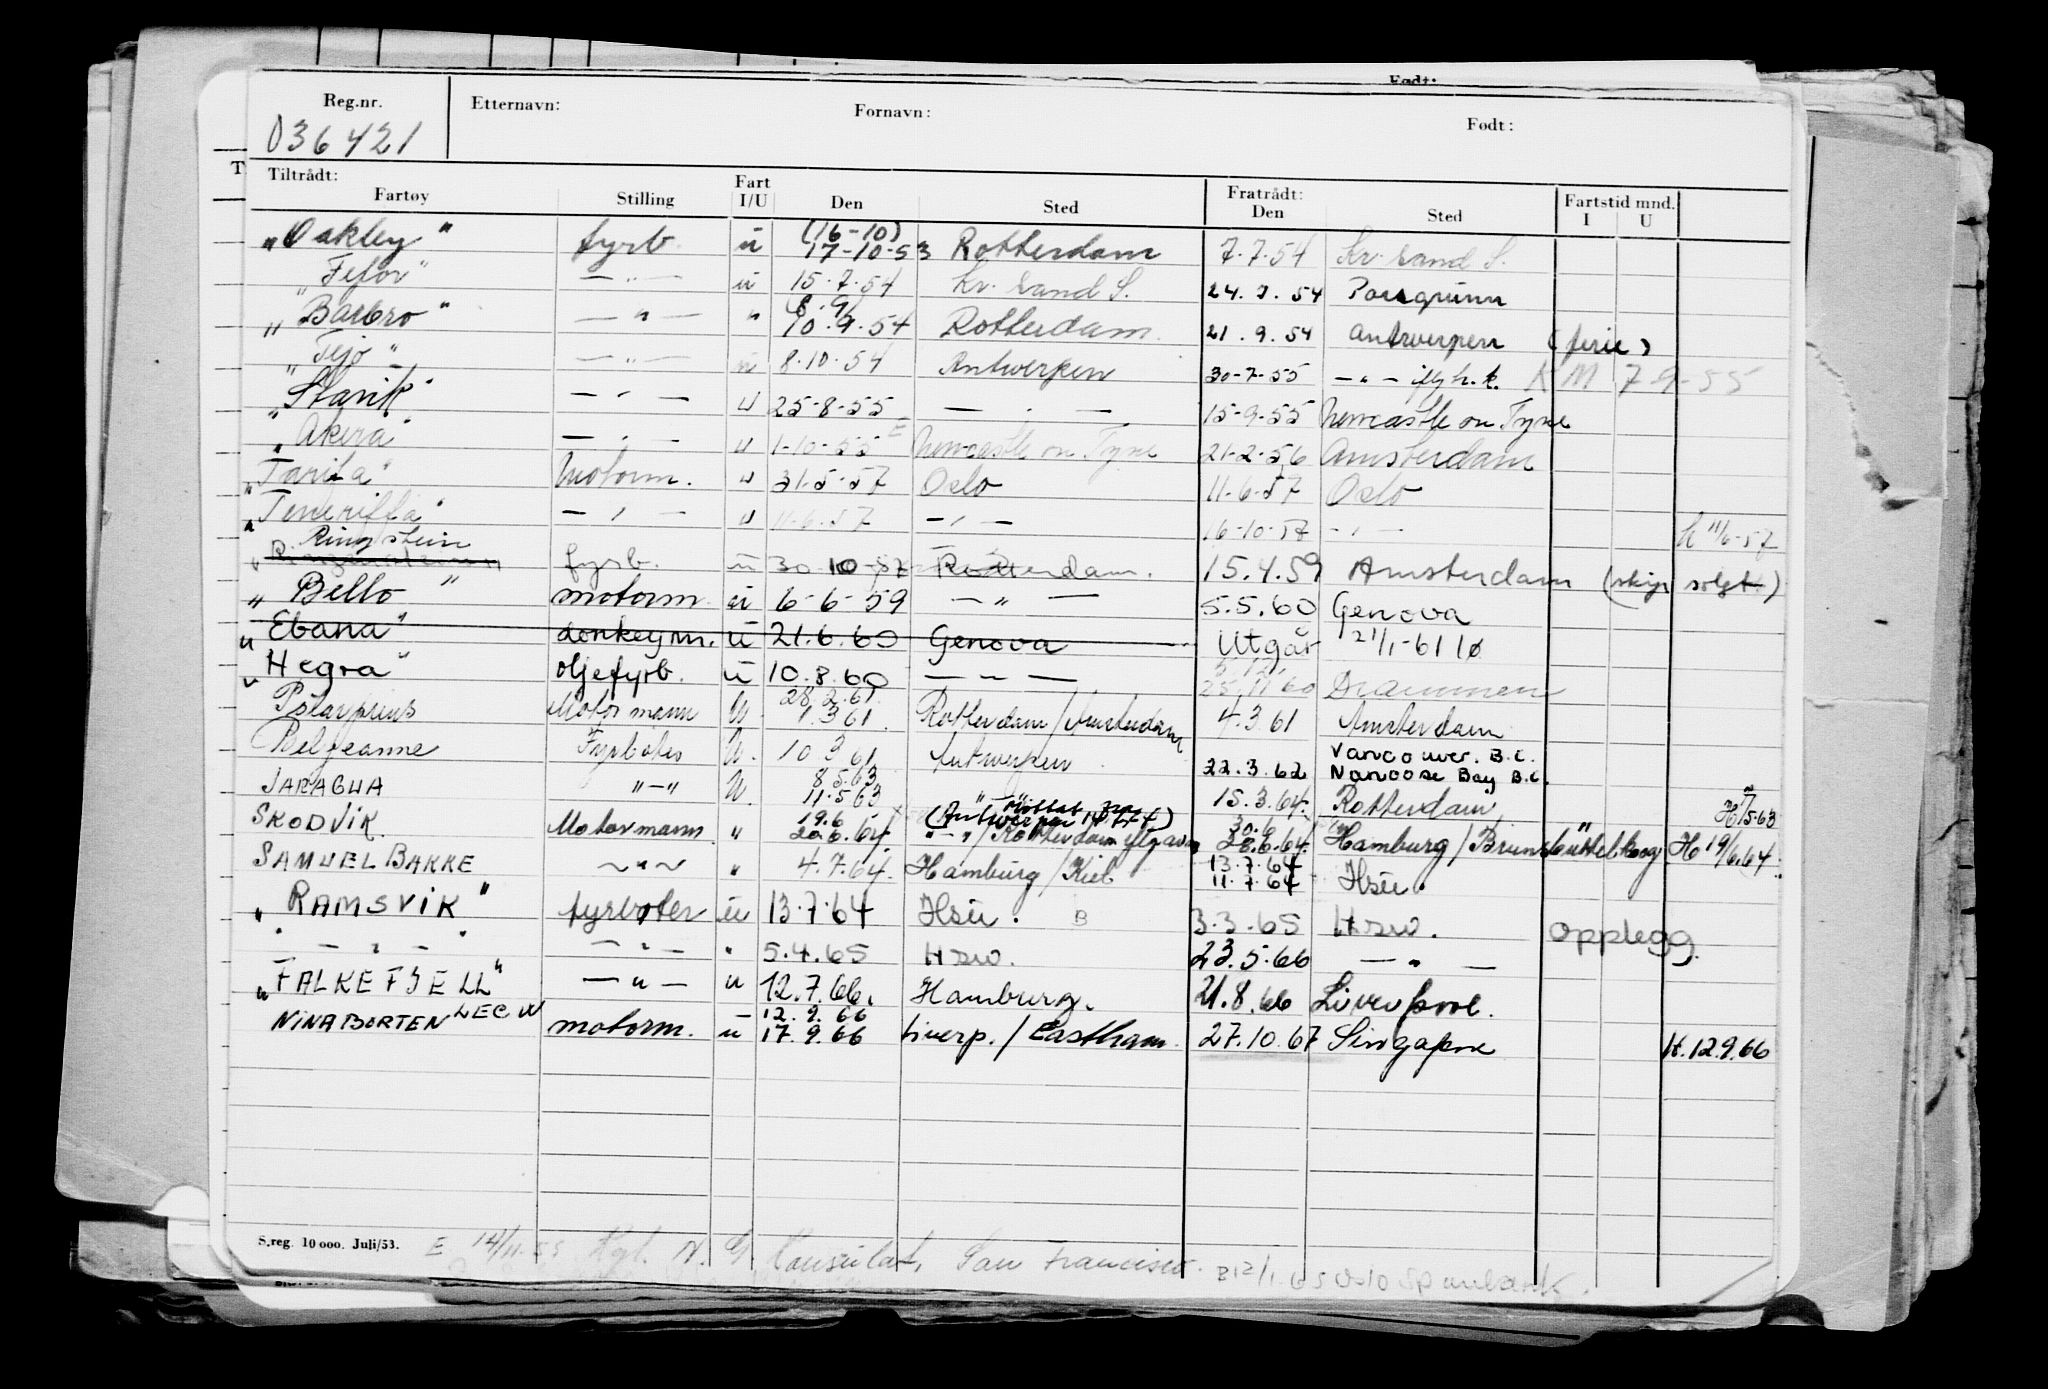 Født:
Reg.nr. Etternavn: Fornavn: Født:
036421
T
Tiltrådt: Fart Fratrådt: Fartstid mnd.
Fartøy Stilling I/U Den Sted Den Sted I U
(16-10)
"Oakley" fyrb. ü 17-10-53 Rotterdam 7.7.54 Kr. sand S.
"Fefor" — " — ü 15.7.54 Kr. sand S. 24.7.54 Porsgrunn
8.9
"Barbro" — " — " 10.9.54 Rotterdam 21.9.54 Antwerpen (ferie)
"Tejo" — " — ü 8.10.54 Antwerpen 30-7-55 — " — h.k. KM 7 9-55
"Stavik" — " — u 25-8-55 — " — 15-9-55 Newcastle on Tyne
"Akera" — " — u 1-10-55 E Newcastle on Tyne 21-2-56 Amsterdam
"Tarifa" Motorm. u 31-5-57 Oslo 11-6-57 Oslo
"Teneriffa" — " — u 11-6-57 — " — 16-10-57 — " — h 11/6-57
Ringstein
" fyrb. ü 30 10-57 Rotterdam. 15.4.59 Amsterdam (skip solgt)
"Bello" motorm. ü 6-6-59 — " — 5.5.60 Genova
"Ebana" donkeym. ü 21.6.60 Genova Utgår 21/1-61 lø
5.12.
"Hegra" oljefyrb. ü 10.8.60 — " — 25.11 60 Drammen
28.2.61
Polarprins Motormann U. 1.3 61. Rotterdam/Amsterdam 4.3.61 Amsterdam
Beljeanne Fyrbøter U. 10 3 61 Antwerpen 22.3.62 Vancouver. B.C.
Nanoose Bay B.C.
8.5.63
JARAGUA " — " U. 11.5 63 " 15.3.64. Rotterdam H /5-63
(Antwerpen)
19.6 30.6
SKODVIK. Motormann " 20.6.64. " - " / Rotterdam 28.6.64. Hamburg/Brunsbüttelkoog H 19/6.64.
13.7.64
SAMUEL BAKKE ~ " ~ " 4.7.64. Hamburg/Kiel 11.7.64 Hsü.
"RAMSVIK" fyrbøter ü 13.7.64 Hsü. B 3.3.65 Hsw. Opplegg.
" — " — " — " — " 5.4.65 Hsw. 23.5.66 — " —
"FALKEFJELL" — " — u 12.7.66. Hamburg. 21.8.66 Liverpool.
12.9.66
NINA BORTEN motorm. u 17.9.66 Liverp./Eastham 27.10.67 Singapore H.12.9.66
S.reg. 10 000. Juli/53. E 14/11.55 Kgl. N. G. Konsulat, San Francisco. B12/1.65 Oslo Sparebank.